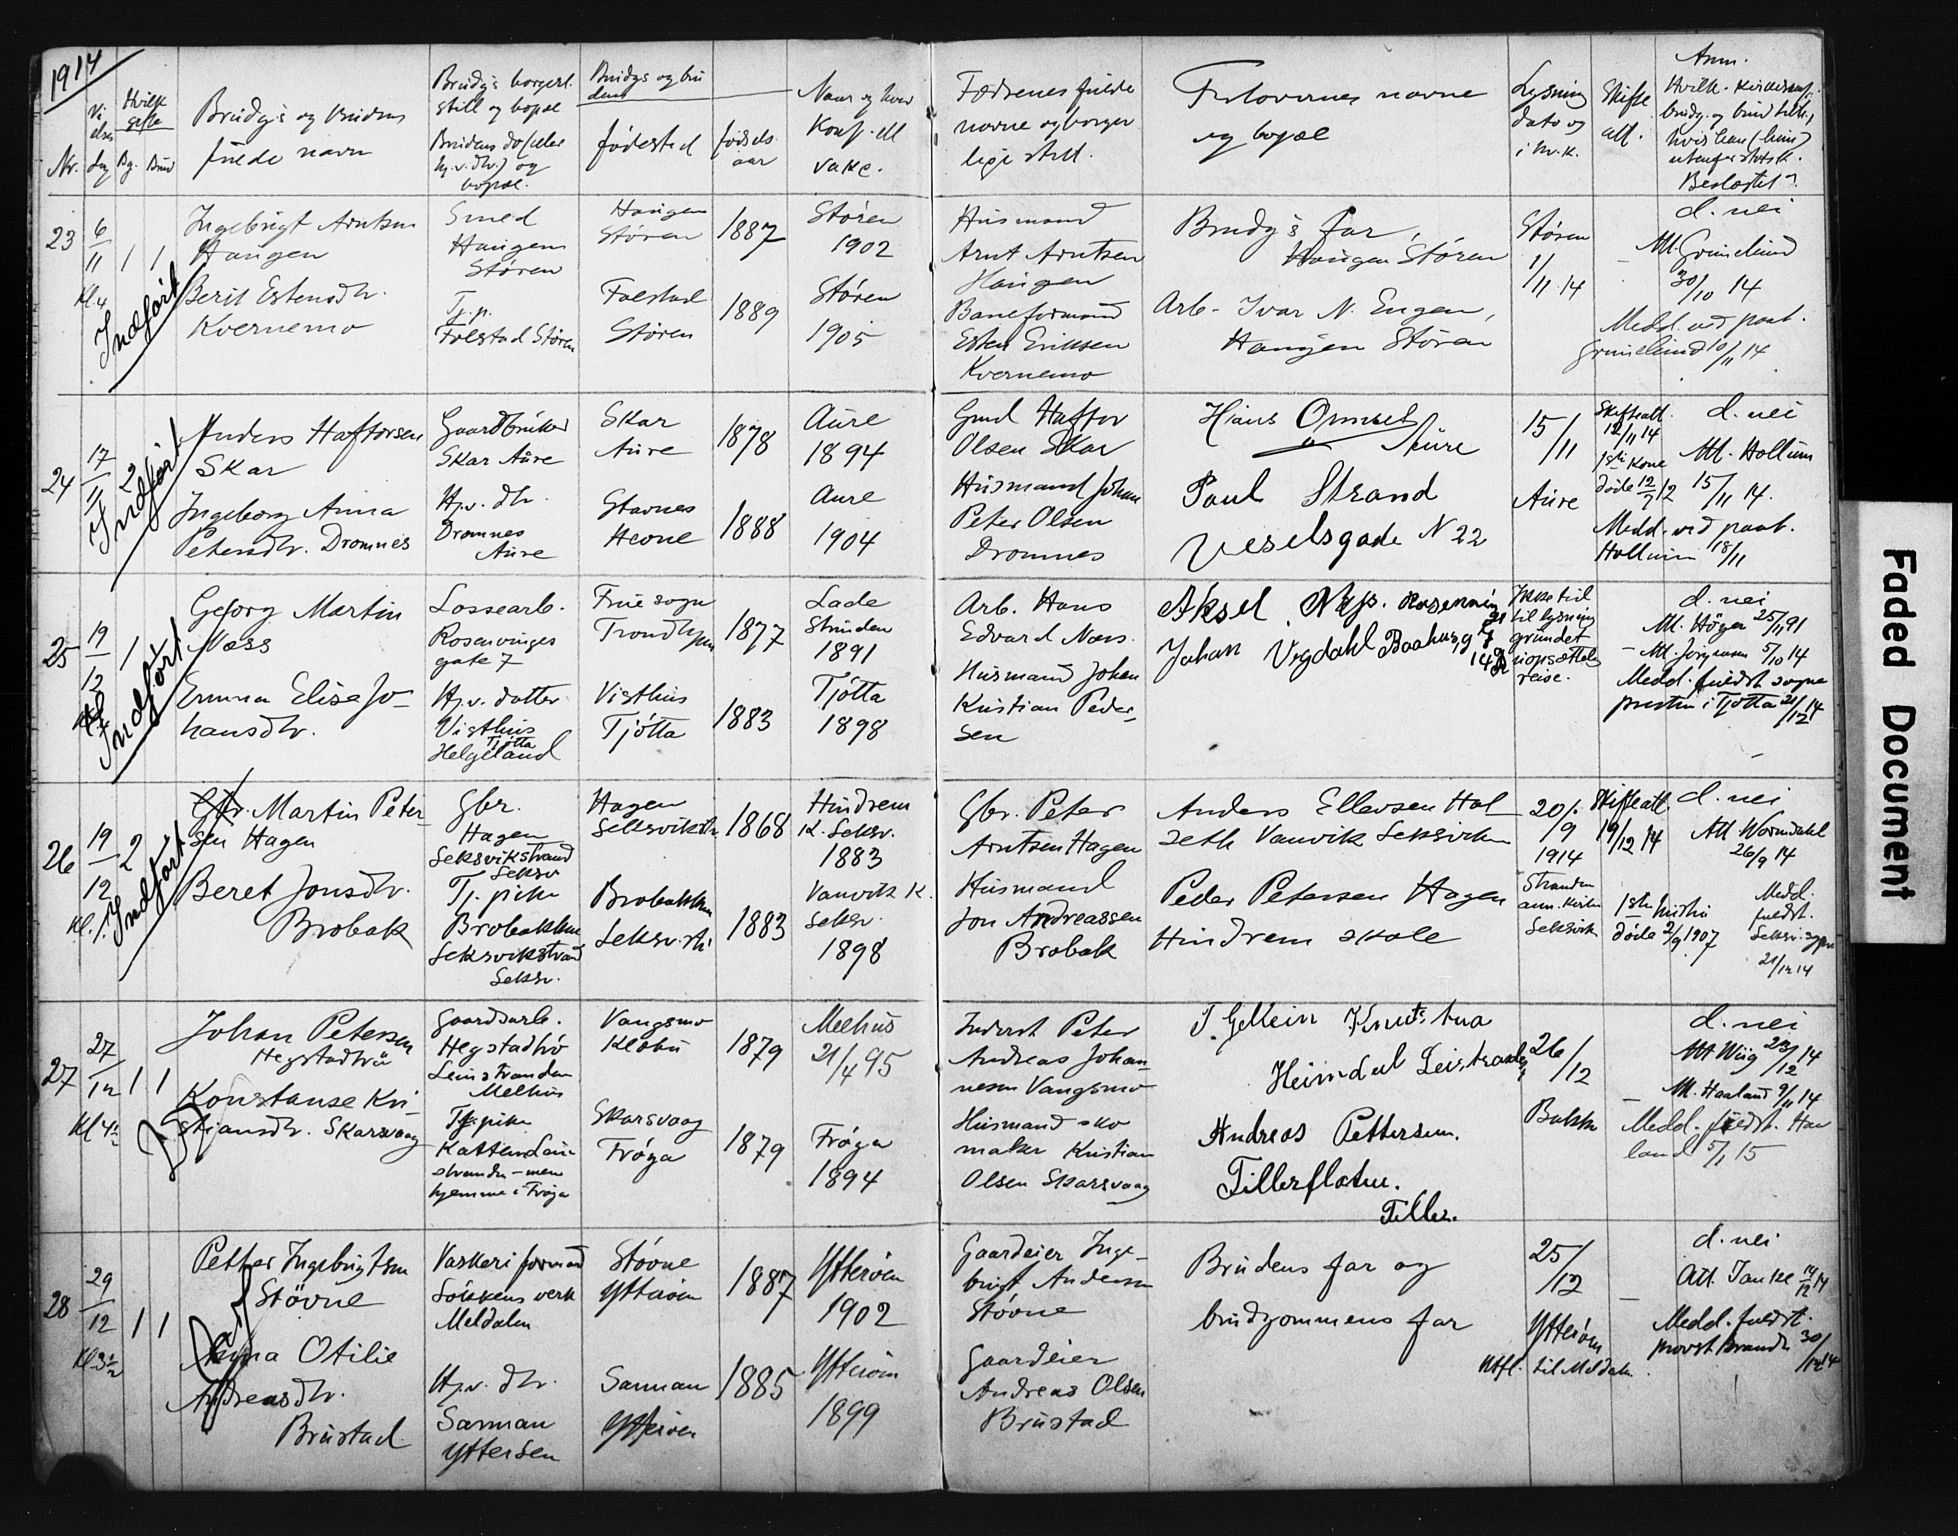 1914
Nr.
Vi
else
dag
Hvilk
gifte
Bg. Brud
Brudg.s og brudens
fulde navn
Brudg.s borgerl.
still og bopæl
Brudens do (eller
hj.v. dtr.) og
bopæl.
Brudgs og bru
dens
fødested
fødsels
aar
Naar og hvor
konf. ell
vakc.
Fædrenes fulde
navne og borger
lige still.
Forlovernes navne
og bopæl
Lysning
dato og
i hv. k.
Skifte
att.
Anm.
brudg. og brud
Beslægtet?
23
6
11
Kl 4
1 1
Indført
Ingebrigt Arntsen
Haugen
Berit Estensdtr.
Kvernemo
Smed
Haugen
Støren
Tj.p.
Folstad Støren
Haugen
Støren
Folstad
Støren
1887
1889
Støren
1902
Støren
1905
Husmand
Arnt Arntsen
Haugen
Baneformand
Esten Eriksen
Kvernemo
Brudg's far,
Haugen Støren
Arb. Ivar N. Engen,
Haugen Støren
Støren
1/11 14
d. nei
Att. Grunelund
30/10 14
Medd. ved paat.
Grunelund 10/11 14
24
17
11
2
Indført
Anders Haftorsen
Skar
Ingeborg Anna
Petersdtr. Dromnes
Gaardbruker
Skar Aure
Hj.v. dtr.
Dromnes
Aure
Skar
Aure
Stavnes
Hevne
1878
1888
Aure
1894
Aure
1904
Gmd Haftor
Olsen Skar
Husmand Johan
Peter Olsen
Dromnes
Hans Omset
" Aure
Paul Strand
Veselsgade N 22
15/11
Aure
Skifteatt.
12/11 14
1ste kone
døde 12/7 12
d. nei
Att. Hollum
15/11 14.
Medd. ved paat.
Hollum 18/11
25
19
12
1
Indført
Georg Martin
Næss
Emma Elise Jo-
hansdtr.
Lossearb.
Rosenvinges
gate 7
Hj.v. datter
Visthus
Tjøtta
Helgeland
Frue sogn
Trondhjem
Visthus
Tjøtta
1877
1883
Lade
Strinden
1891
Tjøtta
1898
Arb. Hans
Edvard Næs.
Husmand Johan
Kristian Peder-
sen
Aksel
Johan Vegdahl Baahus g 7
14
Ikke tid
til lysning
grundet
uopsættel
reise.
d. nei
Att. Høyer 25/11 91
- Att. Jørgensen 5/10 14
Medd. fuldst sogne
presten i Tjøtta 21/12 14
26
19
12
Kl. 1.
2
Indført
Gbr. Martin Peter-
sen Hagen
Beret Jonsdtr.
Brobak
Gbr.
Hagen
Leksvikstrand
Leksv
Tj. pike
Brobakken
Leksvikstrand
Leksv.
Hagen
Leksvikstr
Brobakken
Leksv.str
1868
1883
Hindrem
K. Leksv.
1883
Vanvik K.
Leksv.
1898
Gbr. Peter
Arntsen Hagen
Husmand
Jon Andreassen
Brobak
Anders Ellevsen Hol
seth Vanvik Leksviken
Peder Petersen Hagen
Hindrem skole
20/.
/9
1914
Stranden
ann. kirke
Leksvik
Skifteatt
19/12 14
1ste hustru
døde 2/9 1907
d. nei
Att Worndahl
26/9 14
Medd.
fuldst.
Leksv. sogn
21/12 14
27
27
12
Kl 4½
1 1
Johan Petersen
Hegstadtrø
Konstanse Kri-
stiansdtr. Skarsvaag
Gaardsarb.
Hegstadtrø
Leinstranden
Melhus
Tj. pike
Katten Lein-
stranden - men
hjemme i Frøya
Vangsmo
Klæbu
Skarsvaag
Frøya
1879
1879
Melhus
21/4 95
Frøya
1894
Inderst Peter
Andreas Johan-
nesen Vangsmo
Husmand sko
maker Kristian
Olsen Skarsvaag
Heimdal
Andreas Pettersen.
Tillerflaten.
Tiller.
26/12
Bakke
d. nei
Att Wiig 23/12 14
- Att. Haaland 9/11 14
Medd. fuldst. Haa
land 5/1 15
28
29
12
Kl 3½
1 1
Petter Ingebrigtsen
Støvne
Anna Otilie
Andreasdtr.
Brustad
Vaskeri formand
Løkkens verk
Meldalen
Hj.v. dtr.
Sarman
Ytterøen
Støvne
Ytterøen
Sarman
Ytterøen
1887
1885
Ytterøen
1902
Ytterøen
1899
Gaardeier Inge-
brigt Andersen
Støvne
Gaardeier
Andreas Olsen
Brustad
Brudens far og
brudgommens far
25/12
Ytterøen
Utfl. til Meldalen
d. nei
Att. Tanke 14/12 14
Medd. fuldst.
provst Brandt 30/12 14
Faded Document